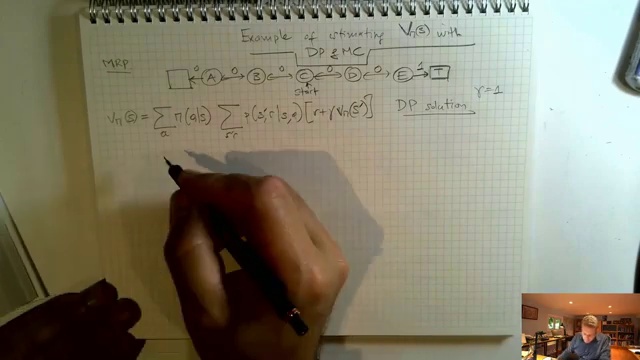 Example of estimating Vπ(s) with
DP & MC
MRP
0 0 0 0 0 1
A B C D E T
start
γ=1
Vπ(s) = Σ π(a|s) Σ p(s',r|s,a) [r+γVπ(s')] DP solution
a s'r